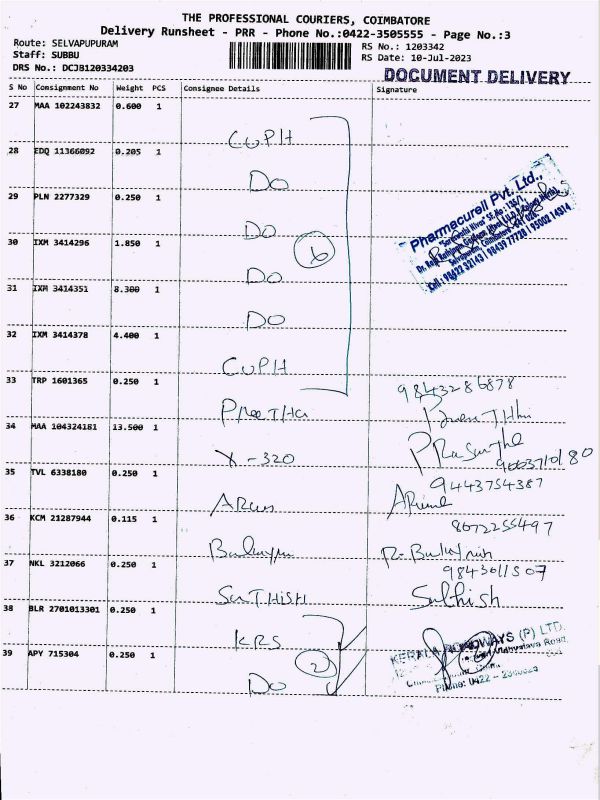 THE PROFESSIONAL COURIERS, COIMBATORE
Delivery Runsheet - PRR - Phone No.:0422-3505555 - Page No.:3
Route: SELVAPUPURAM
Staff: SUBBU
DRS No.: DCJB120334203
RS No.: 1203342
RS Date: 10-Jul-2023
DOCUMENT DELIVERY
S No Consignment No Weight PCS Consignee Details Signature
27 MAA 102243832 0.600 1
CUPH
28 EDQ 11366092 0.205 1
DO
29 PLN 2277329 0.250 1
DO
Pharmacurell Pvt. Ltd.,
30 IXM 3414296 1.850 1
6
DO
31 IXM 3414351 8.300 1
DO
32 IXM 3414378 4.400 1
CUPH
33 TRP 1601365 0.250 1
9843286878
PreeTHa
34 MAA 104324181 13.500 1
X-320
9003710180
35 TVL 6338180 0.250 1
9443754387
Arun
36 KCM 21287944 0.115 1
8072255497
37 NKL 3212066 0.250 1
9843011507
SaTHISH
Sathish
38 BLR 2701013301 0.250 1
KRS
KERALA ROADWAYS (P) LTD.
39 APY 715304 0.250 1
2
DO